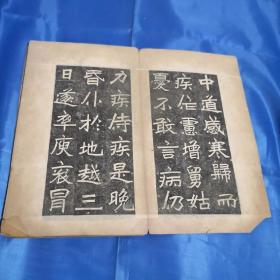 中道感寒歸而
疾作重增舅姑
憂不敢言病仍
力疾侍疾是晚
昏仆於地越三
日遂卒庚哀冒